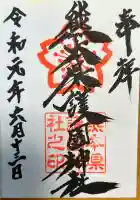 奉拝
熊本県護国神社
熊本県
社之印
令和元年六月十三日